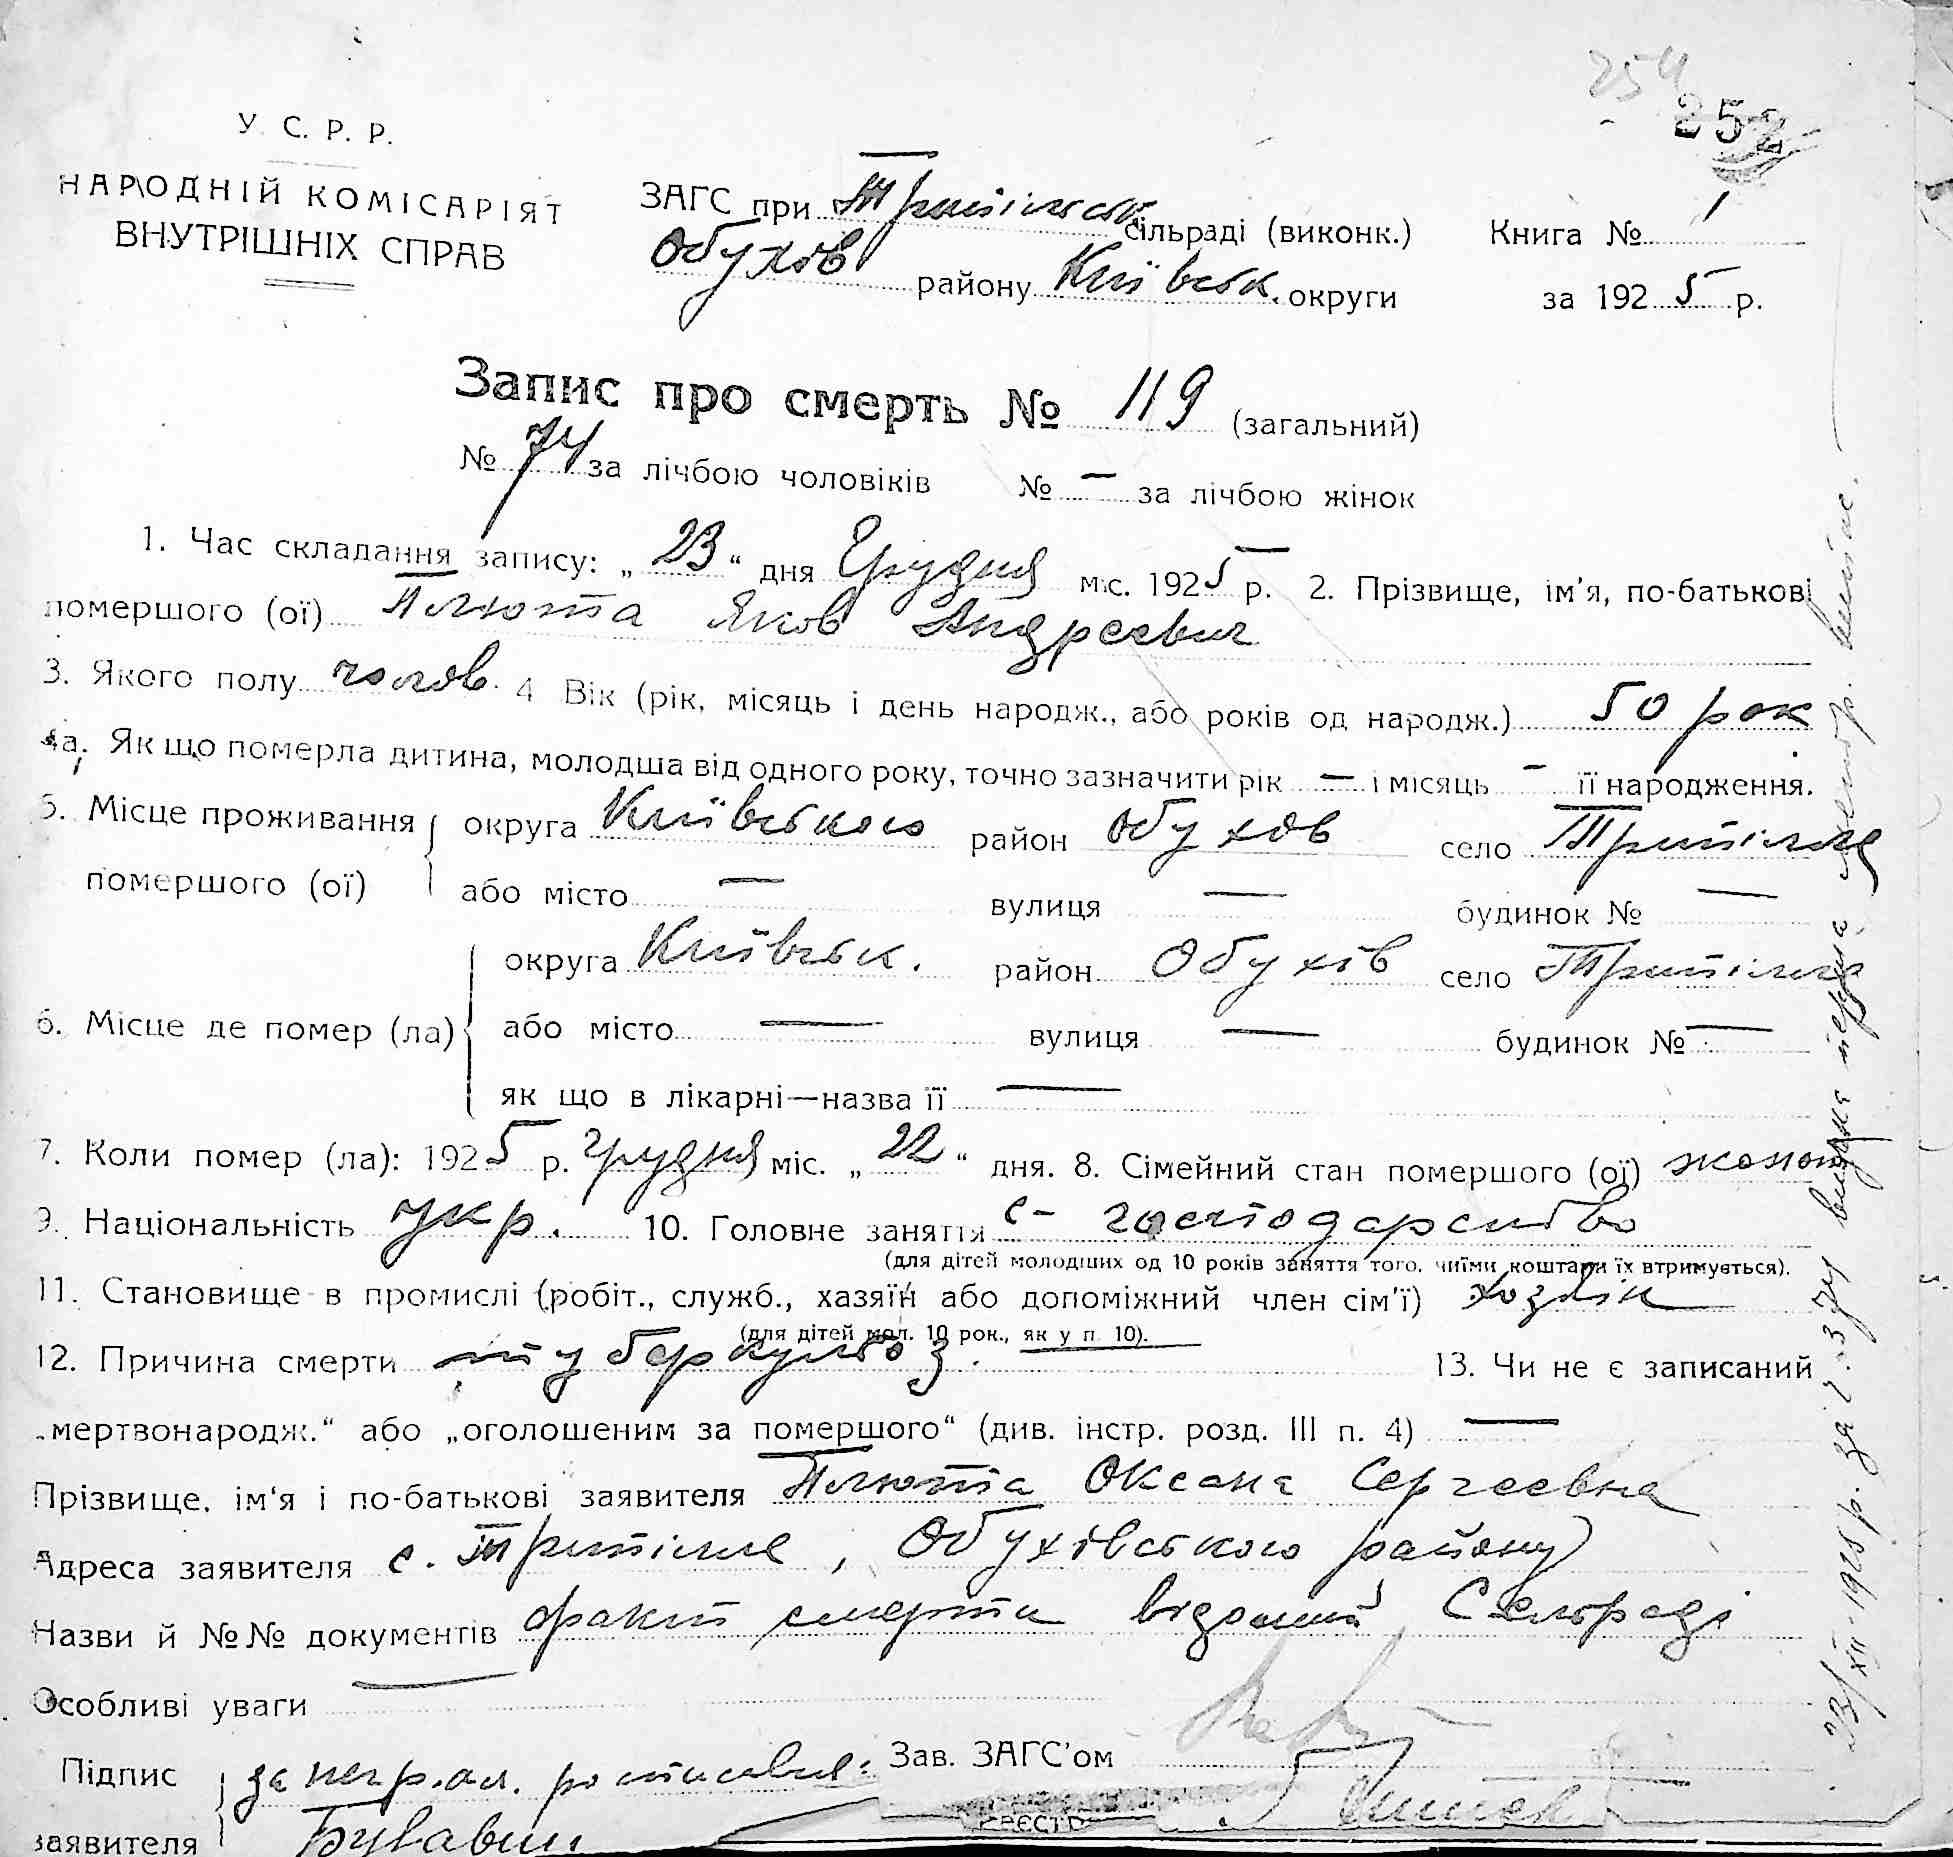 254
252
У. С. Р. Р.
НАРОДНІЙ КОМІСАРІЯТ
ВНУТРІШНІХ СПРАВ
ЗАГС при Трипільськ. сільраді (виконк.) Книга № 1
Обухов району Київськ. округи за 1925 р.
Запис про смерть № 119 (загальний)
№ 74 за лічбою чоловіків № — за лічбою жінок
1. Час складання запису: „23“ дня Грудня міс. 1925 р. 2. Прізвище, ім'я, по-батькові
помершого (ої) Плюта Яков Андреевич
3. Якого полу чолов. 4 Вік (рік, місяць і день народж., або років од народж.) 50 рок
4а. Як що померла дитина, молодша від одного року, точно зазначити рік — і місяць — її народження.
5. Місце проживання округа Київського район Обухов село Трипілля
помершого (ої) або місто — вулиця — будинок № —
округа Київськ. район Обухів село Трипілля
6. Місце де помер (ла) або місто — вулиця — будинок № —
як що в лікарні—назва її —
7. Коли помер (ла): 1925 р. Грудня міс. „22“ дня. 8. Сімейний стан помершого (ої)
9. Національність укр. 10. Головне заняття с-господарство
(для дітей молодших од 10 років заняття того, чиїми коштами їх втримується).
11. Становище в промислі (робіт., служб., хазяїн або допоміжний член сім'ї) хозяїн
(для дітей мол. 10 рок., як у п. 10).
12. Причина смерти туберкульоз. 13. Чи не є записаний
„мертвонародж.“ або „оголошеним за помершого“ (див. інстр. розд. III п. 4) —
Прізвище, ім'я і по-батькові заявителя Плюта Оксана Сергеевна
Адреса заявителя с. Трипілля, Обухівського району
Назви й №№ документів факт смерти відомий Сельраді
Особливі уваги —
Підпис заявителя за негр. ол. Зав. ЗАГС'ом
23/XII 1925 р. за ч. 374 видана перша